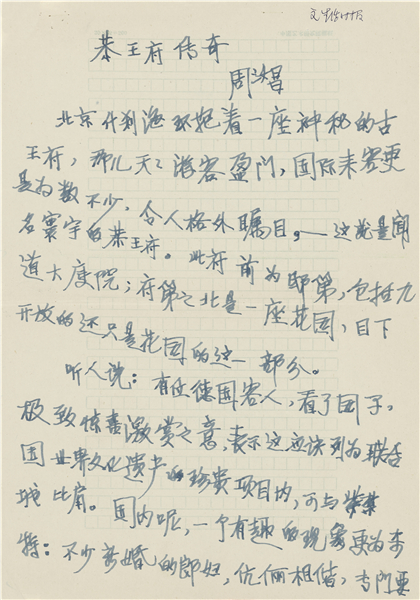 恭王府传奇
周汝昌
北京什刹海环抱着一座神秘的古
王府，那儿天天游客盈门，国际来客更
是为数不少，令人格外瞩目，——这就是闻
名寰宇的恭王府。此府前为邸第，包括九
道大庭院；府第之北是一座花园，目下
开放的还只是花园的这一部分。
听人说：有位德国客人，看了园子，
极致惊喜激赏之意，表示这应该列为联合
国世界文化遗产的珍贵项目内，可与紫禁
城比肩。国内呢，一个有趣的现象更为奇
特：不少新婚的郎妇，伉俪相偕，专门要